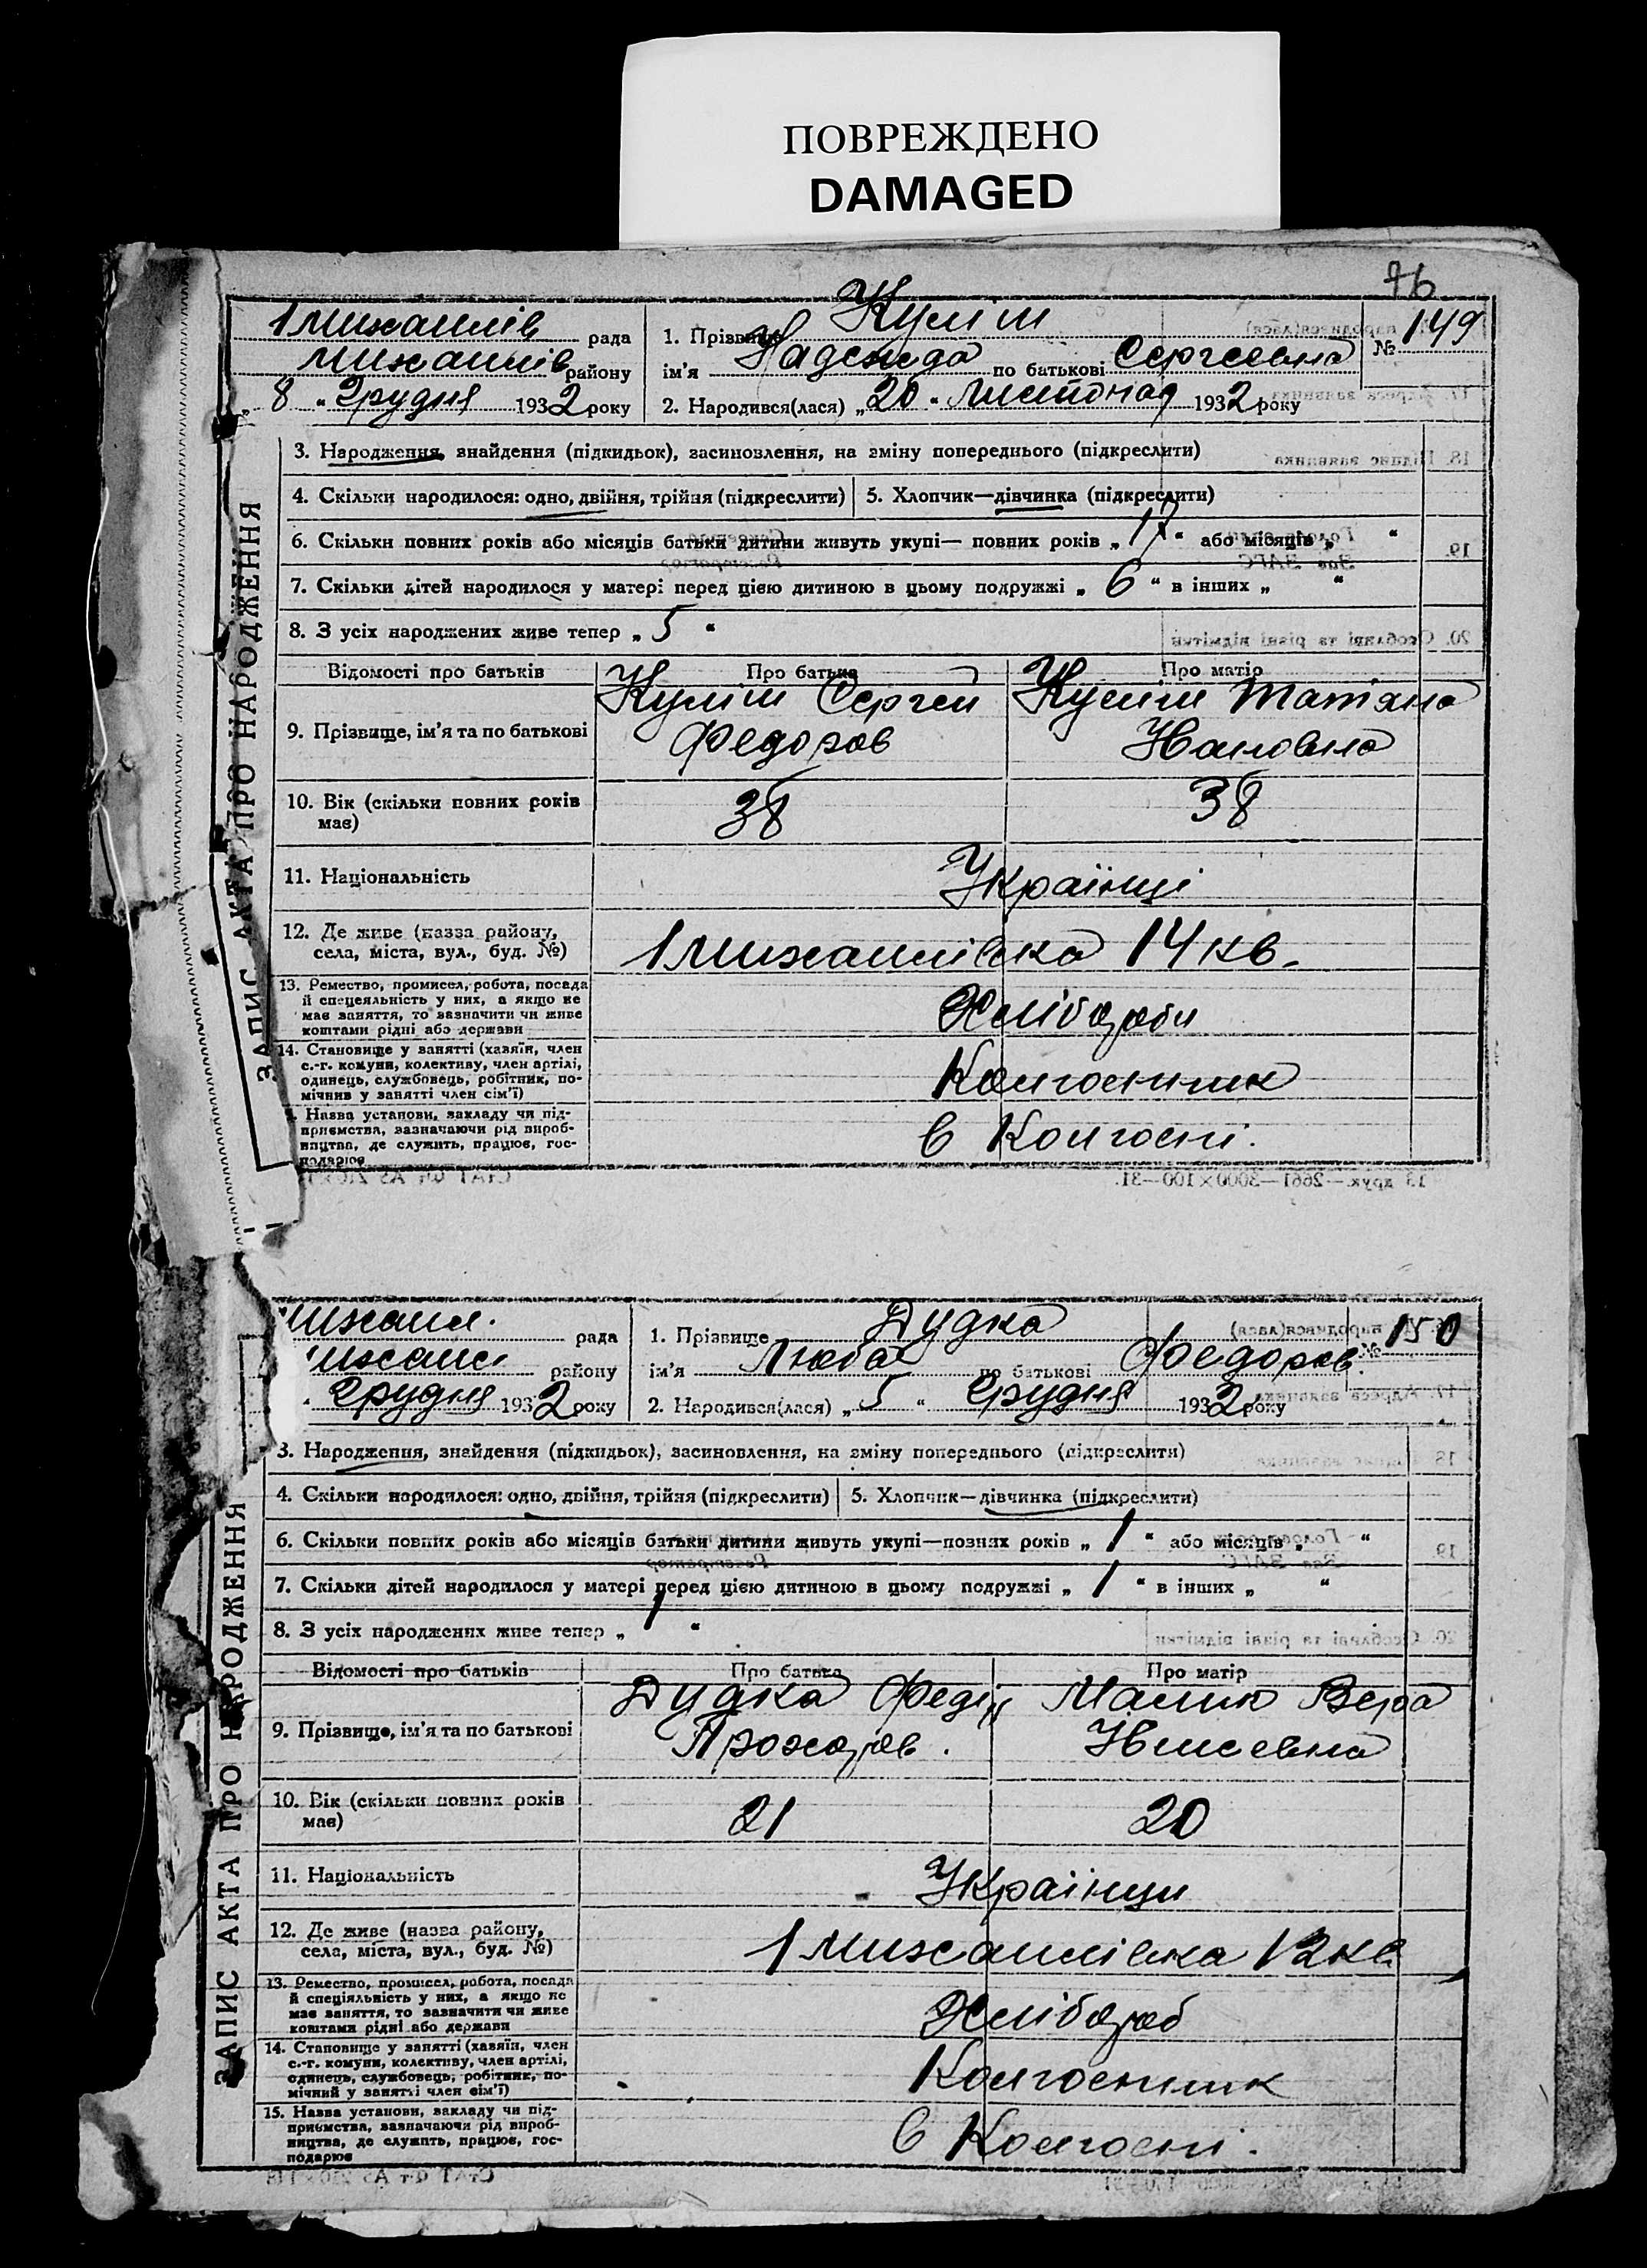 ПОВРЕЖДЕНО
DAMAGED
76
1 Михайлів рада
Михайлів району
„ 8 „ Грудня 1932 року
1. Прізвище Куліш
ім'я Надежда по батькові Сергеевна
№ 149
2. Народився(лася) „ 20 „ Листопад 1932 року
ЗАПИС АКТА ПРО НАРОДЖЕННЯ
3. Народження, знайдення (підкидьок), засиновлення, на зміну попереднього (підкреслити)
4. Скільки народилося: одно, двійня, трійня (підкреслити) 5. Хлопчик—дівчинка (підкреслити)
6. Скільки повних років або місяців батьки дитини живуть укупі— повних років „ 17 “ або місяців „ “
7. Скільки дітей народилося у матері перед цією дитиною в цьому подружжі „ 6 “ в інших „ “
8. З усіх народжених живе тепер „ 5 “
Відомості про батьків Про батька Про матір
9. Прізвище, ім'я та по батькові
Куліш Сергей
Федоров
Куліш Татіяна
Ивановна
10. Вік (скільки повних років
має)
38 38
11. Національність Українці
12. Де живе (назва району,
села, міста, вул., буд. №)
1 Михайлівка 14 кв.
13. Ремество, промисел, робота, посада
й спецеяльність у них, а якщо не
має заняття, то зазначити чи живе
коштами рідні або держави
Хлібороби
14. Становище у занятті (хазяїн, член
с.-г. комуни, колективу, член артілі,
одинець, службовець, робітник, по-
мічник у занятті член сім'ї)
Колгоспник
Назва установи, закладу чи під-
приємства, зазначаючи рід вироб-
ництва, де служить, працює, гос-
подарює
в Колгоспі.
Михайл. рада
району
Грудня 1932 року
1. Прізвище Дудка
ім'я Люба по батькові Федоров.
№ 150
2. Народився(лася) „ 5 “ Грудня 1932 року
ЗАПИС АКТА ПРО НАРОДЖЕННЯ
3. Народження, знайдення (підкидьок), засиновлення, на зміну попереднього (підкреслити)
4. Скільки народилося: одно, двійня, трійня (підкреслити) 5. Хлопчик—дівчинка (підкреслити)
6. Скільки повних років або місяців батьки дитини живуть укупі—повних років „ 1 “ або місяців „ “
7. Скільки дітей народилося у матері перед цією дитиною в цьому подружжі „ 1 “ в інших „ “
8. З усіх народжених живе тепер „ 1 “
Відомості про батьків Про батька Про матір
9. Прізвище, ім'я та по батькові
Дудка Федір
Прохоров.
Малик Вера
10. Вік (скільки повних років
має)
21 20
11. Національність Українци
12. Де живе (назва району,
села, міста, вул., буд. №)
1 Михайлівка 12 кв.
13. Ремество, промисел, робота, посада
й спеціяльність у них, а якщо не
має заняття, то зазначити чи живе
коштами рідні або держави
Хлібороб
14. Становище у занятті (хазяїн, член
с.-г. комуни, колективу, член артілі,
одинець, службовець, робітник, по-
мічний у занятті член сім'ї)
Колгоспник
15. Назва установи, закладу чи під-
приємства, зазначаючи рід вироб-
ництва, де служить, працює, гос-
подарює
в Колгоспі.